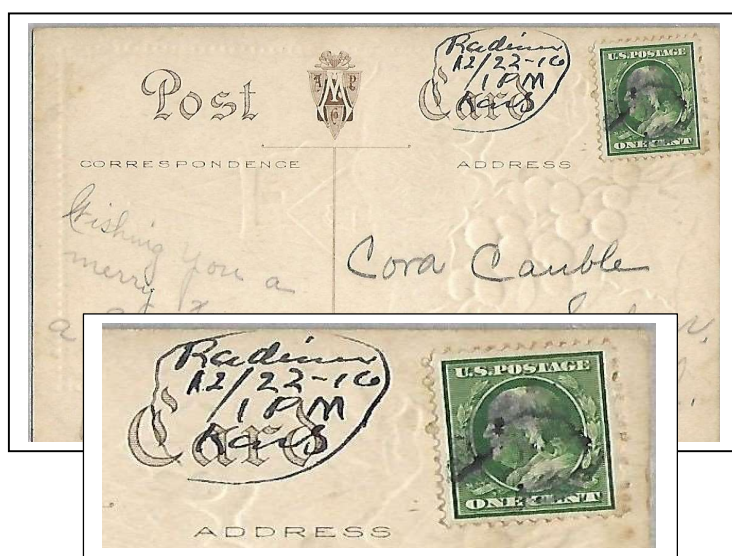 Post Card
Radium
12/22-10
1 PM
Kans
U.S. POSTAGE
ONE CENT
CORRESPONDENCE
ADDRESS
Wishing you a
merry
a
Cora Cauble
Radium
12/22-10
1 PM
Kans
Card
U.S. POSTAGE
ONE CENT
ADDRESS